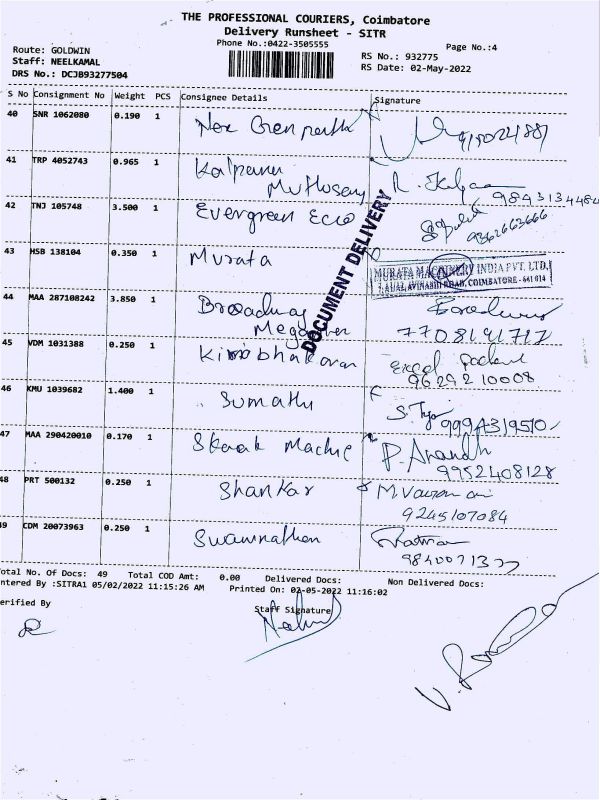 THE PROFESSIONAL COURIERS, Coimbatore
Delivery Runsheet - SITR
Phone No.:0422-3505555
Page No.:4
Route: GOLDWIN
Staff: NEELKAMAL
DRS No.: DCJB93277504
RS No.: 932775
RS Date: 02-May-2022
S No Consignment No Weight PCS Consignee Details Signature
40 SNR 1062080 0.190 1
41 TRP 4052743 0.965 1 Kalpana
9843134484
42 TNJ 105748 3.500 1 Evergreen
9362663666
43 HSB 138104 0.350 1 Murata
MURATA MACHINERY INDIA PVT. LTD.,
AVINASHI ROAD, COIMBATORE - 641 014
DOCUMENT DELIVERY
44 MAA 287108242 3.850 1 Broadway
7708141712
45 VDM 1031388 0.250 1
9629210008
46 KMU 1039682 1.400 1 Sumathy
9994319510
47 MAA 290420010 0.170 1 P. Anandh
9952408128
48 PRT 500132 0.250 1 Shankar
9245107084
49 CDM 20073963 0.250 1 Swaminathan
Total No. Of Docs: 49 Total COD Amt: 0.00 Delivered Docs: Non Delivered Docs:
Entered By :SITRA1 05/02/2022 11:15:26 AM Printed On: 02-05-2022 11:16:02
Verified By Staff Signature